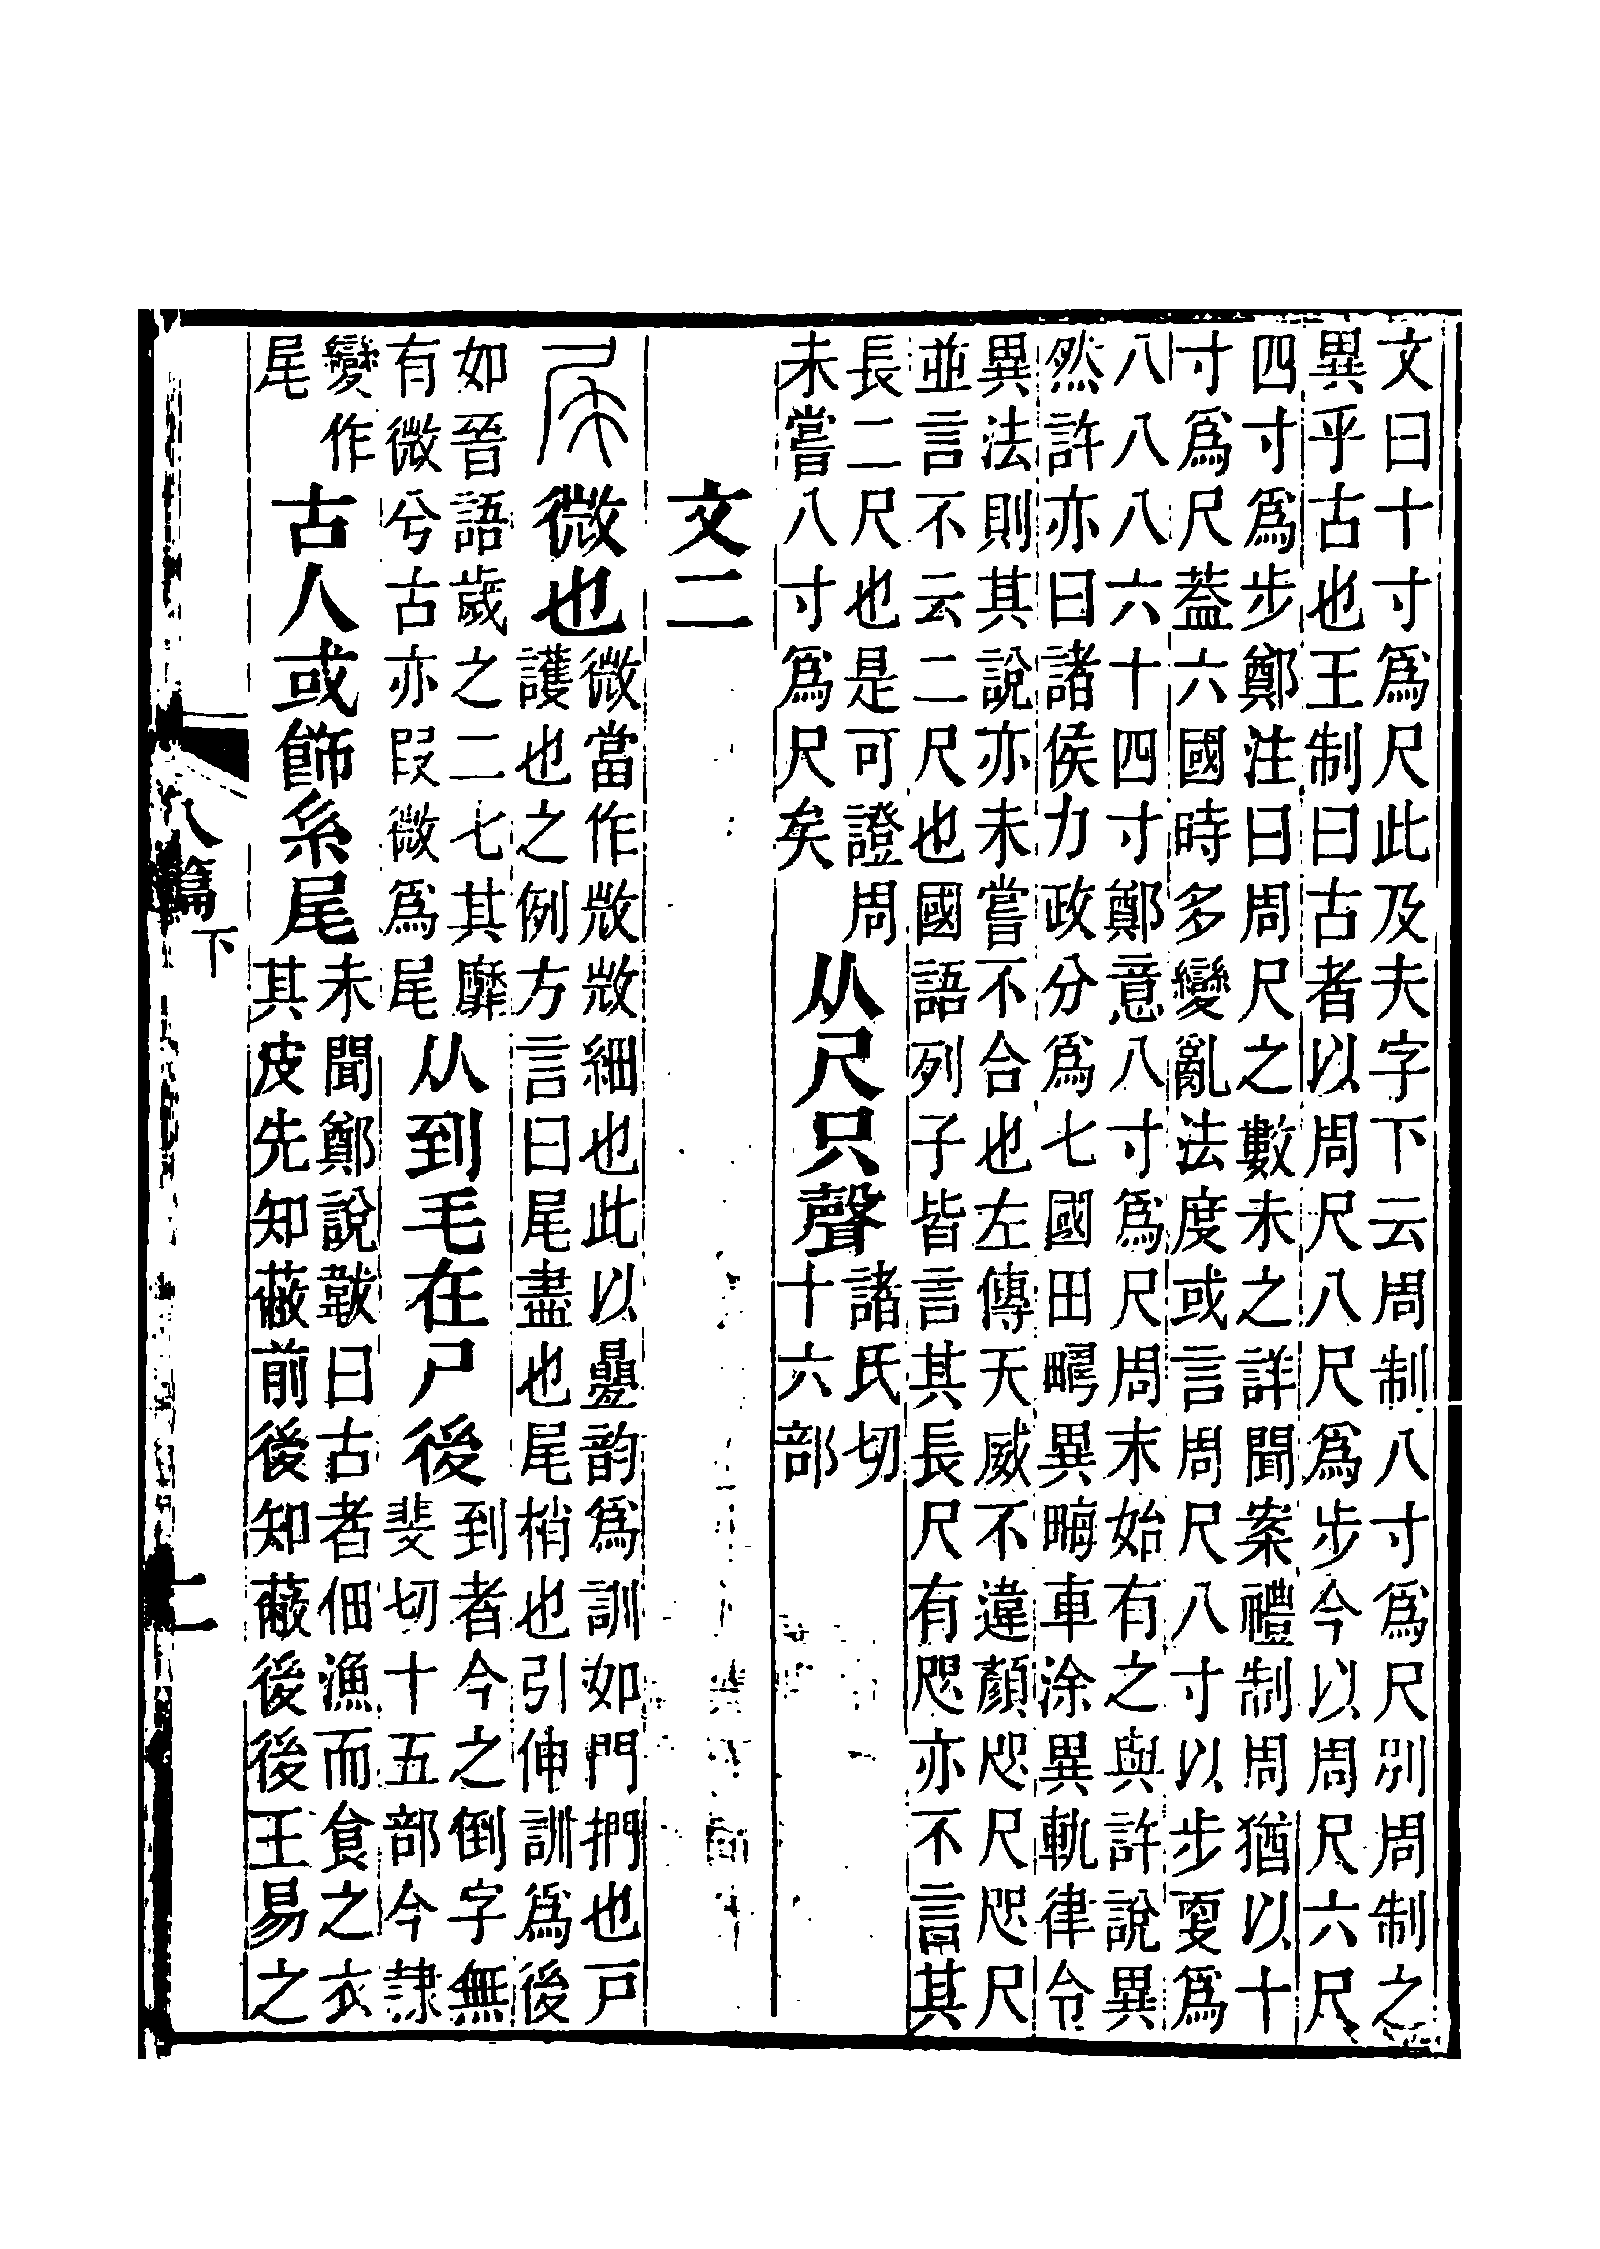 文曰十寸爲尺此及夫字下云周制八寸爲尺別周制之
異乎古也王制曰古者以周尺八尺爲步今以周尺六尺
四寸爲步鄭注曰周尺之數未之詳聞案禮制周猶以十
寸爲尺葢六國時多變亂法度或言周尺八寸以步更爲
八八八六十四寸鄭意八寸爲尺周末始有之與許說異
然許亦曰諸侯力政分爲七國田疇異畮車涂異軌律令
異法則其說亦未嘗不合也左傳天威不違顏咫尺咫尺
並言不云二尺也國語列子皆言其長尺有咫亦不言其
長二尺也是可證周
未嘗八寸爲尺矣
从尺只聲
諸氏切
十六部
文二
尾 微也
微當作㪣㪣細也此以曡韵爲訓如門捫也戶
護也之例方言曰尾盡也尾梢也引伸訓爲後
如晉語歲之二七其靡
有微兮古亦叚微爲尾
从到毛在尸後
到者今之倒字無
斐切十五部今隷
變作
尾
古人或飾系尾
未聞鄭說韍曰古者佃漁而食之衣
其皮先知蔽前後知蔽後後王易之
八篇下